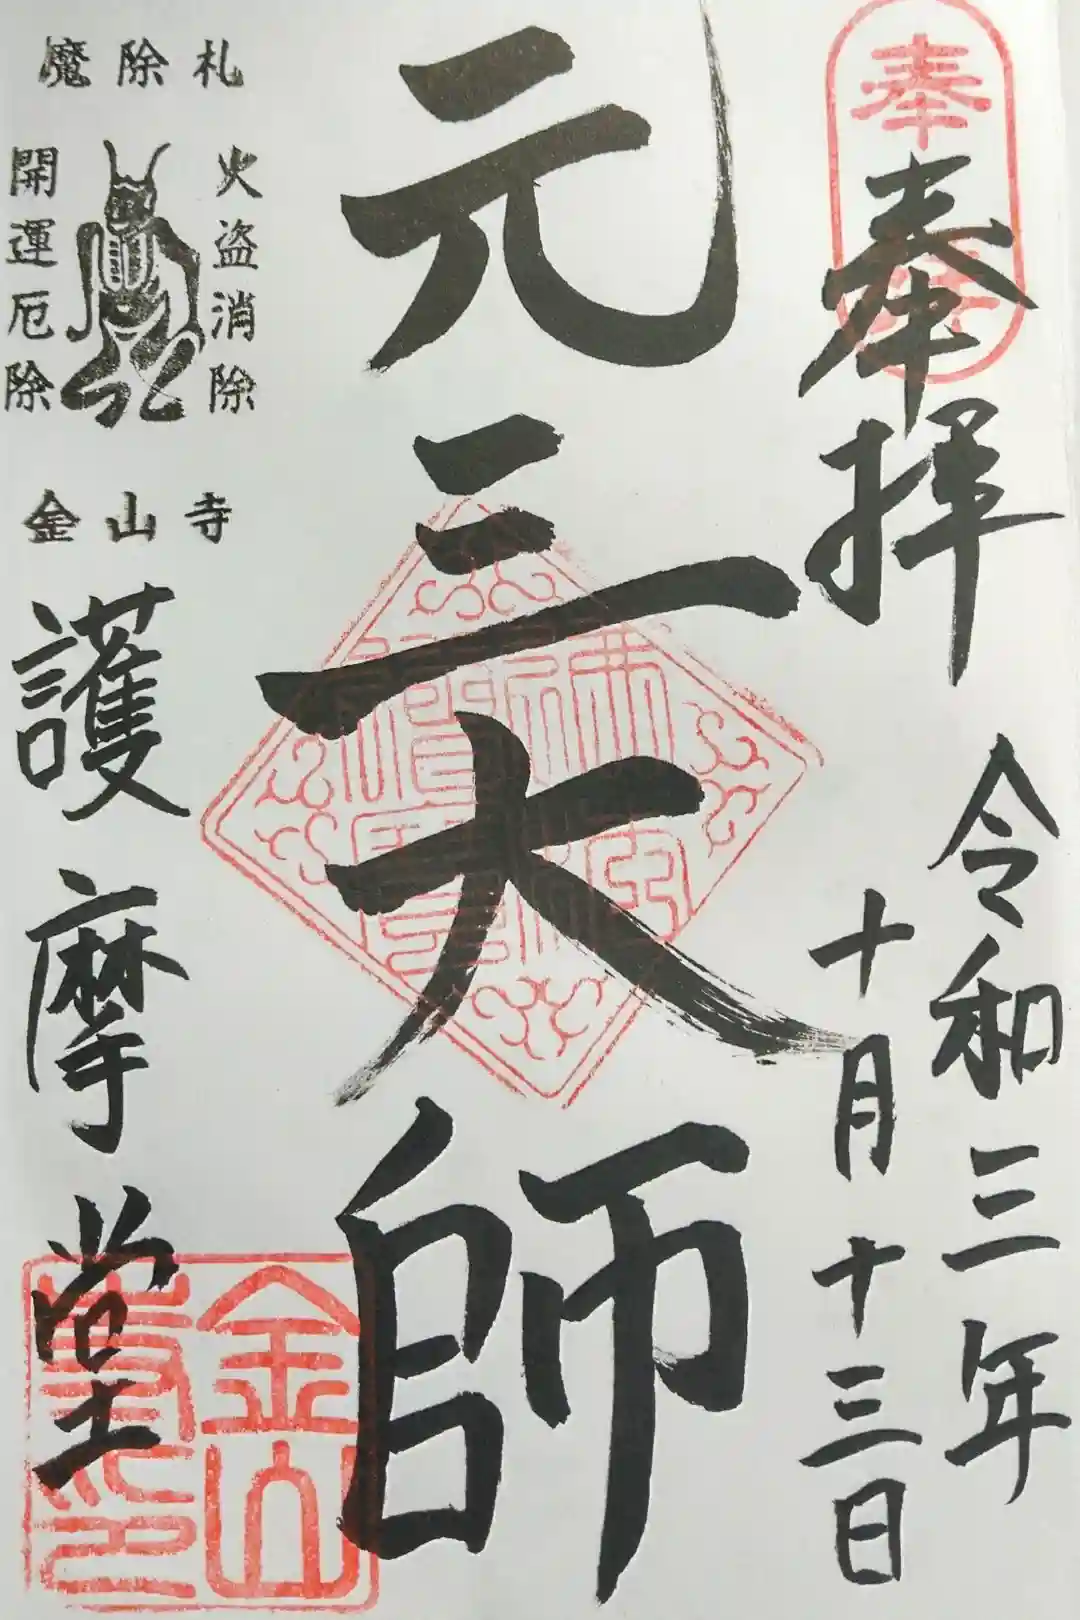 奉拝
令和三年
十月十三日
奉拝
元三大師
魔除札
火盗消除
開運厄除
金山寺
護摩堂
金山寺印